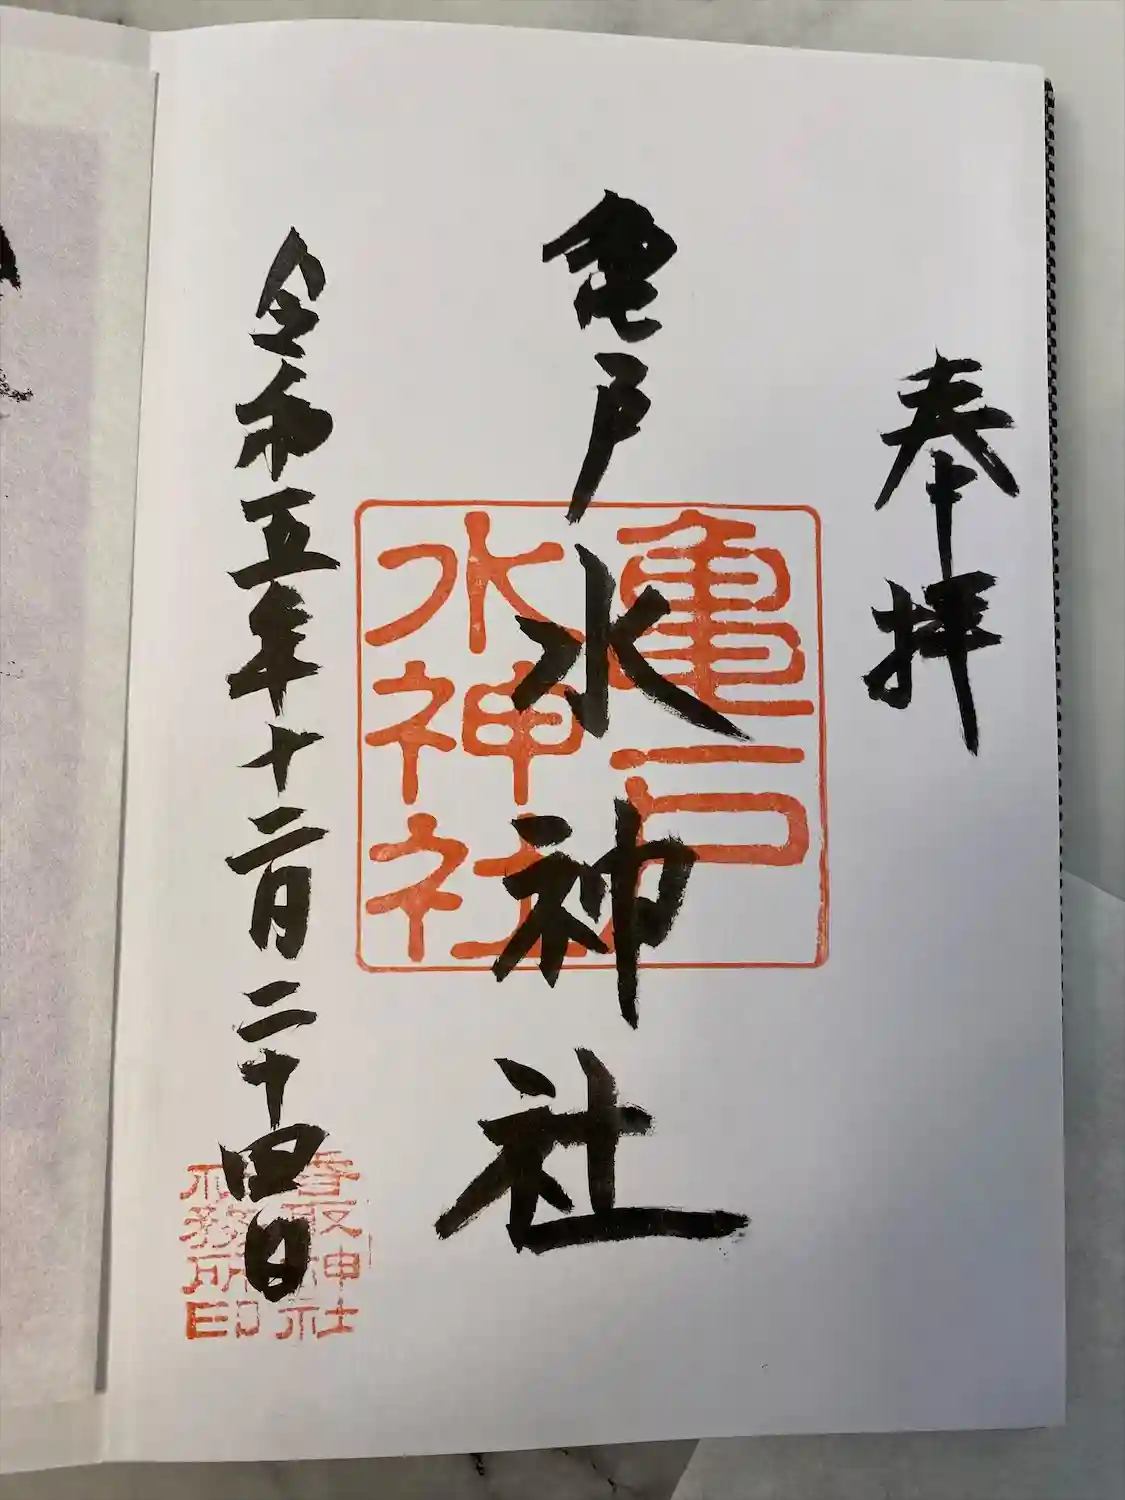 奉拝
亀戸水神社
亀戸
水神社
令和五年十二月二十四日
香取神社
社務所印